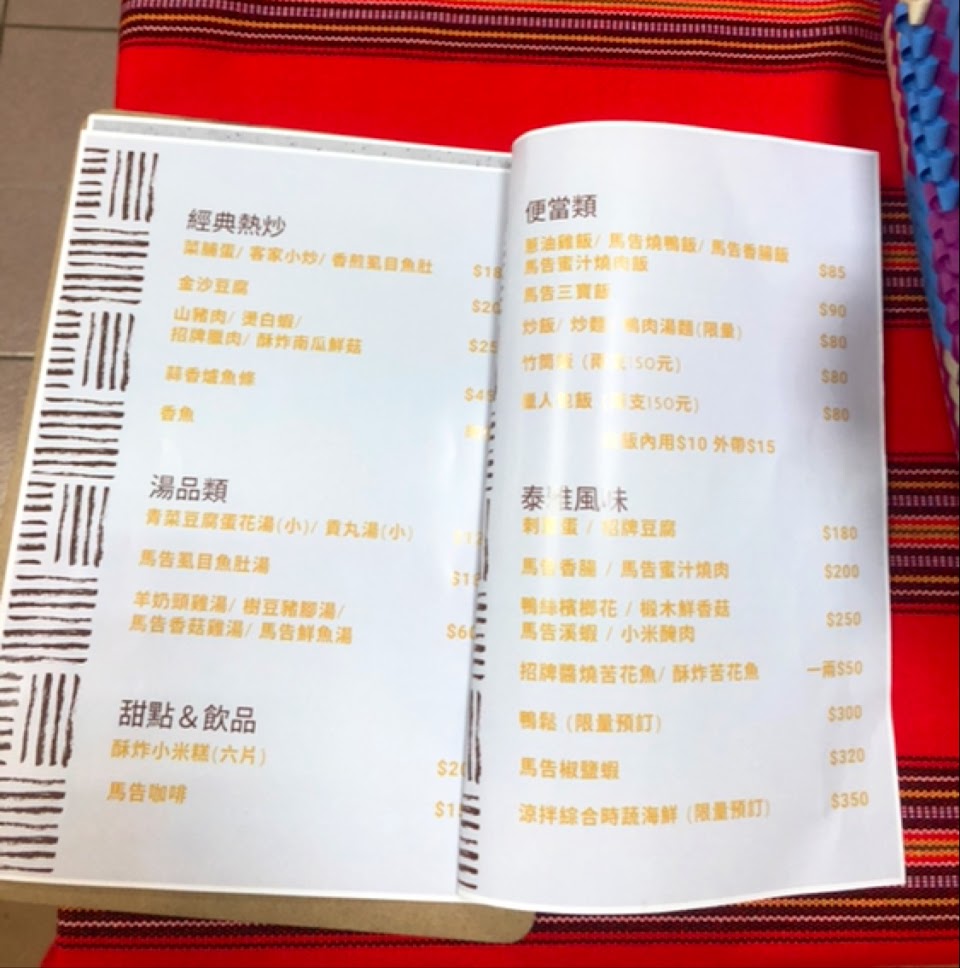 經典熱炒
菜脯蛋/ 客家小炒/ 香煎虱目魚肚
金沙豆腐
山豬肉/ 燙白蝦/
招牌臘肉/ 酥炸南瓜鮮菇
蒜香爐魚條
香魚
湯品類
青菜豆腐蛋花湯(小)/ 貢丸湯(小)
馬告虱目魚肚湯
羊奶頭雞湯/ 樹豆豬腳湯/
馬告香菇雞湯/ 馬告鮮魚湯
甜點＆飲品
酥炸小米糕(六片)
馬告咖啡
便當類
蔥油雞飯/ 馬告燒鴨飯/ 馬告香腸飯
馬告蜜汁燒肉飯 $85
馬告三寶飯 $90
炒飯/ 炒麵/ 鴨肉湯麵(限量) $80
竹筒飯 (兩支150元) $80
包飯 150元) $80
飯內用$10 外帶$15
泰雅風味
刺蔥蛋 / 招牌豆腐 $180
馬告香腸 / 馬告蜜汁燒肉 $200
鴨絲檳榔花 / 椴木鮮香菇
馬告溪蝦 / 小米醃肉 $250
招牌醬燒苦花魚/ 酥炸苦花魚 一兩$50
鴨鬆 (限量預訂) $300
馬告椒鹽蝦 $320
涼拌綜合時蔬海鮮 (限量預訂) $350